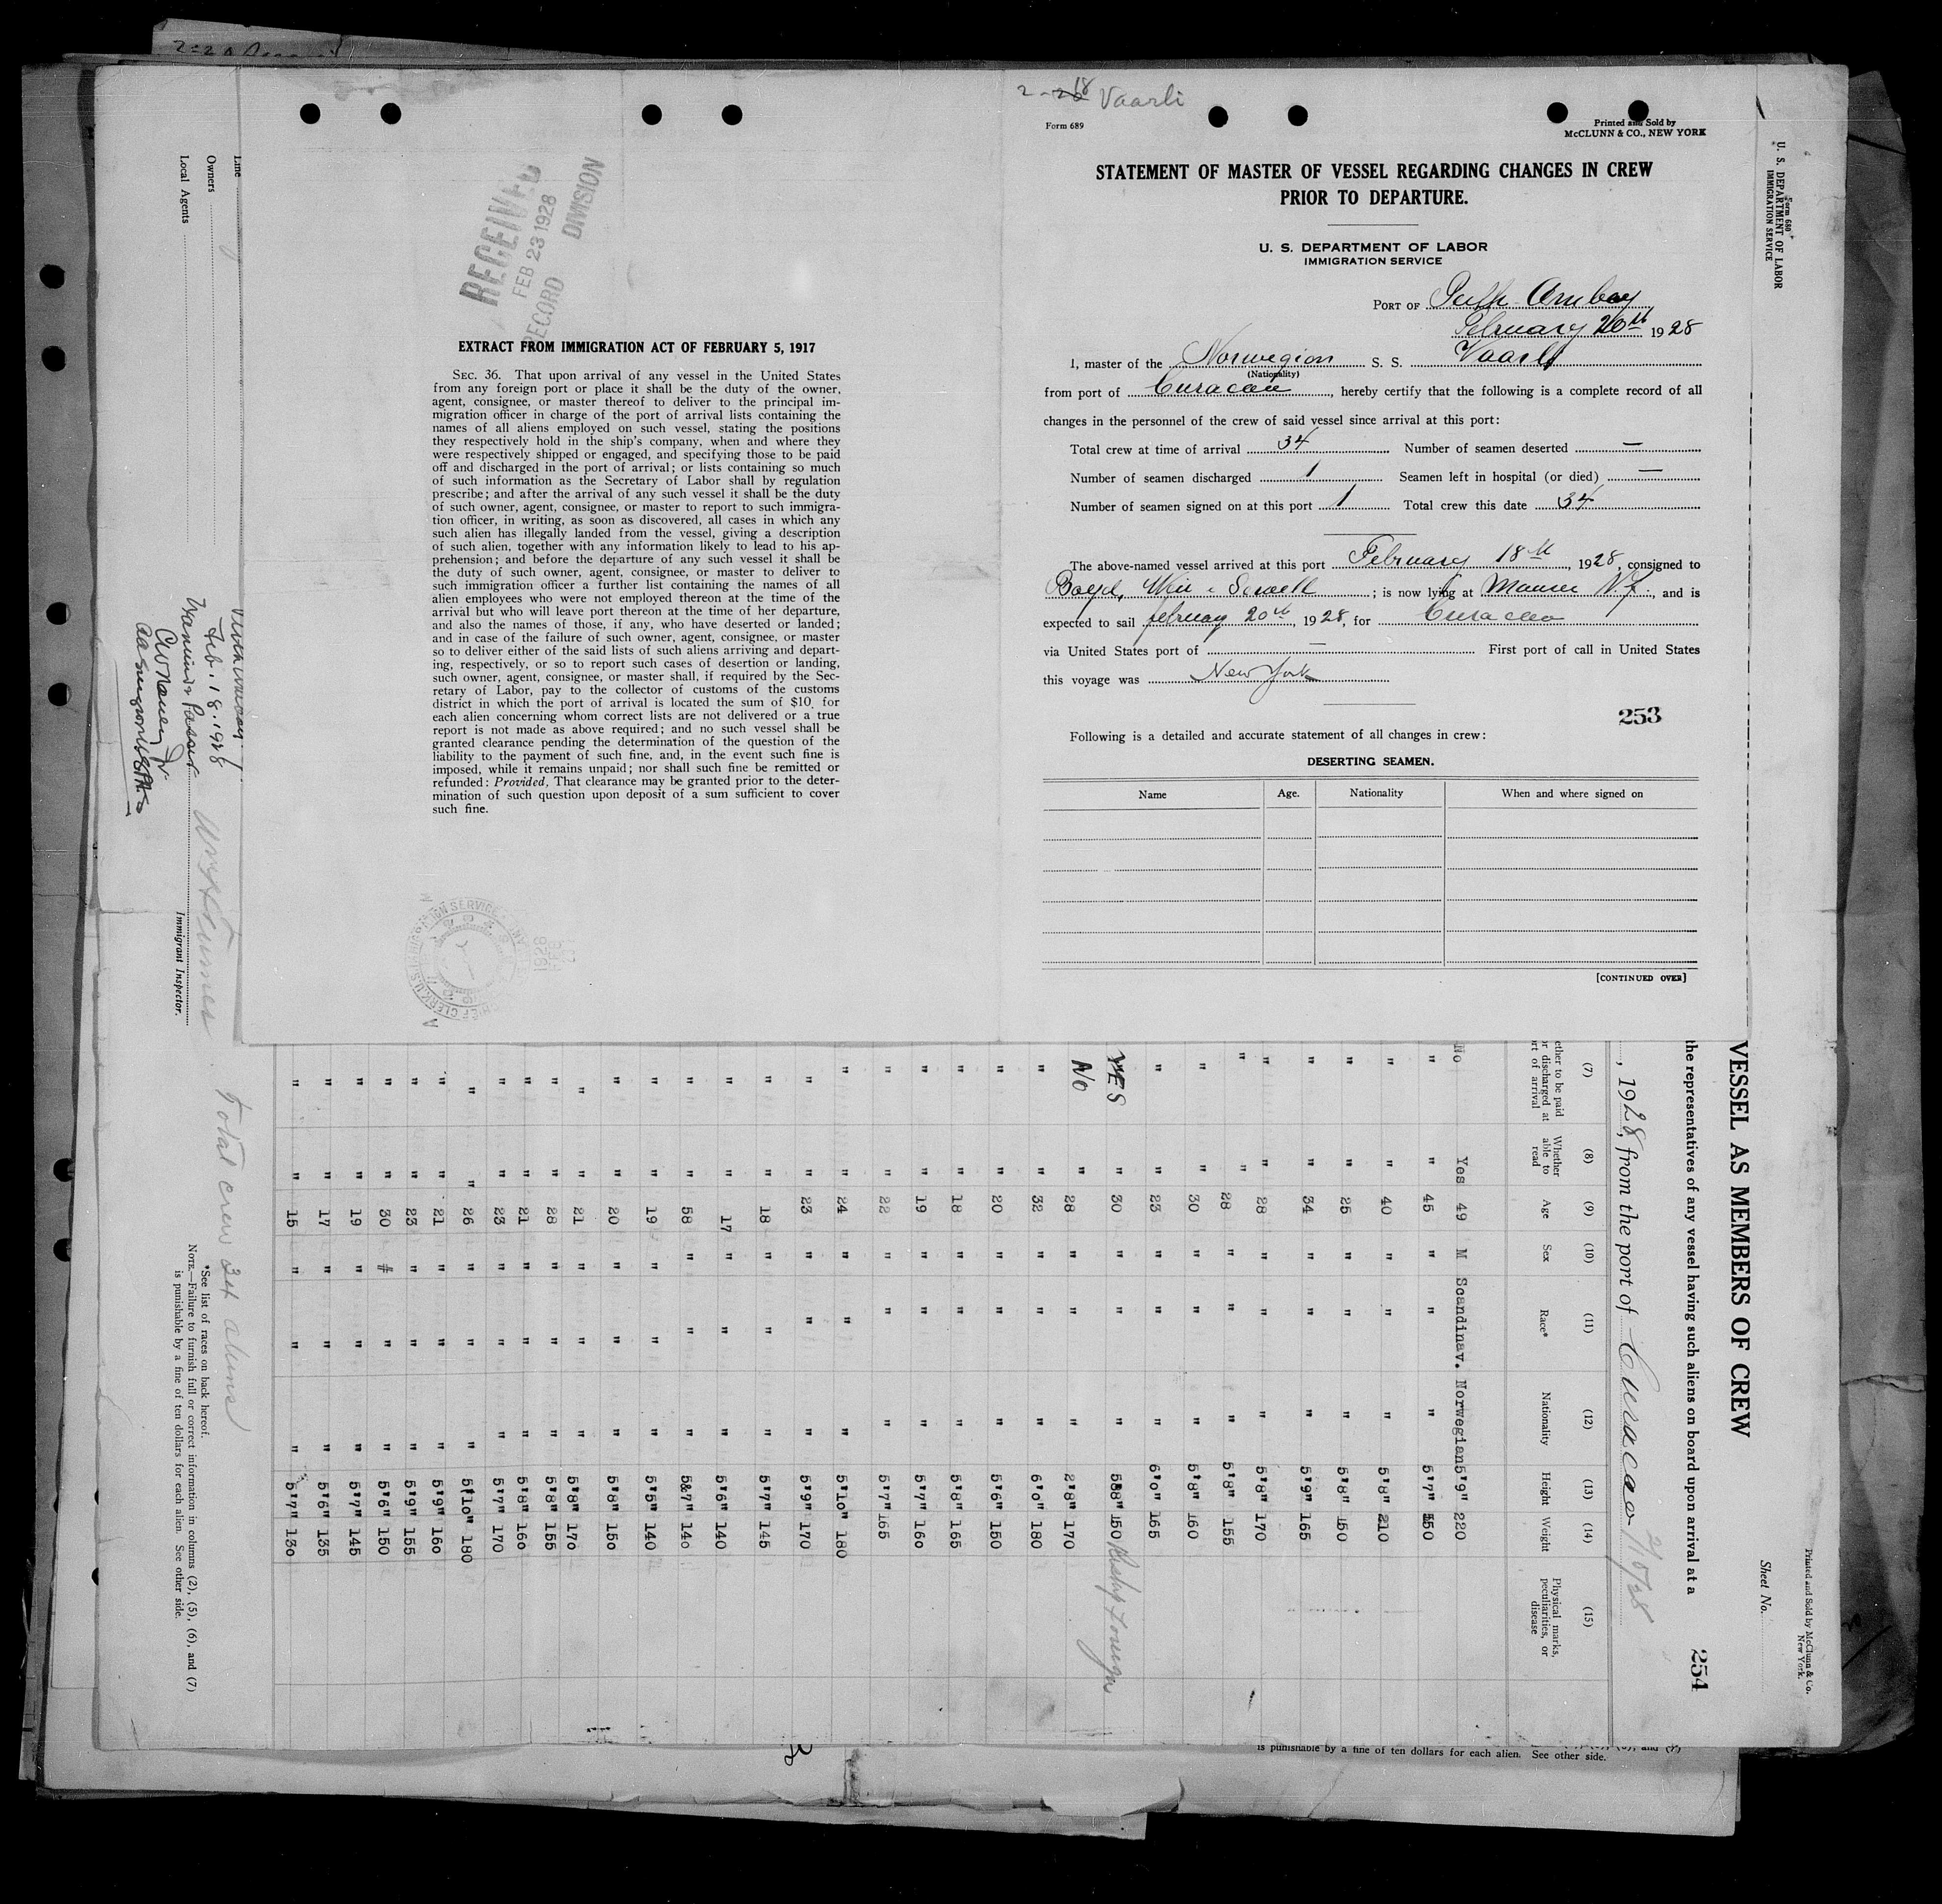 2-18 Vaarli
Form 689
Printed and Sold by
McCLUNN & CO., NEW YORK
STATEMENT OF MASTER OF VESSEL REGARDING CHANGES IN CREW
PRIOR TO DEPARTURE.
U. S. DEPARTMENT OF LABOR
IMMIGRATION SERVICE
PORT OF Perth Amboy
February 20th 1928
I, master of the Norwegian S. S. Vaarli
(Nationality)
from port of Curacao, hereby certify that the following is a complete record of all
changes in the personnel of the crew of said vessel since arrival at this port:
Total crew at time of arrival 34 Number of seamen deserted —
Number of seamen discharged 1 Seamen left in hospital (or died) —
Number of seamen signed on at this port 1 Total crew this date 34
The above-named vessel arrived at this port February 18th, 1928, consigned to
Boyd, Weir & Sewell; is now lying at Maurer N.J., and is
expected to sail february 20th, 1928, for Curacao
via United States port of — First port of call in United States
this voyage was New York
253
Following is a detailed and accurate statement of all changes in crew:
DESERTING SEAMEN.
Name Age. Nationality When and where signed on
[CONTINUED OVER]
RECEIVED
FEB 23 1928
RECORD DIVISION
EXTRACT FROM IMMIGRATION ACT OF FEBRUARY 5, 1917
SEC. 36. That upon arrival of any vessel in the United States
from any foreign port or place it shall be the duty of the owner,
agent, consignee, or master thereof to deliver to the principal im-
migration officer in charge of the port of arrival lists containing the
names of all aliens employed on such vessel, stating the positions
they respectively hold in the ship's company, when and where they
were respectively shipped or engaged, and specifying those to be paid
off and discharged in the port of arrival; or lists containing so much
of such information as the Secretary of Labor shall by regulation
prescribe; and after the arrival of any such vessel it shall be the duty
of such owner, agent, consignee, or master to report to such immigra-
tion officer, in writing, as soon as discovered, all cases in which any
such alien has illegally landed from the vessel, giving a description
of such alien, together with any information likely to lead to his ap-
prehension; and before the departure of any such vessel it shall be
the duty of such owner, agent, consignee, or master to deliver to
such immigration officer a further list containing the names of all
alien employees who were not employed thereon at the time of the
arrival but who will leave port thereon at the time of her departure,
and also the names of those, if any, who have deserted or landed;
and in case of the failure of such owner, agent, consignee, or master
so to deliver either of the said lists of such aliens arriving and depart-
ing, respectively, or so to report such cases of desertion or landing,
such owner, agent, consignee, or master shall, if required by the Sec-
retary of Labor, pay to the collector of customs of the customs
district in which the port of arrival is located the sum of $10 for
each alien concerning whom correct lists are not delivered or a true
report is not made as above required; and no such vessel shall be
granted clearance pending the determination of the question of the
liability to the payment of such fine, and, in the event such fine is
imposed, while it remains unpaid; nor shall such fine be remitted or
refunded: Provided, That clearance may be granted prior to the deter-
mination of such question upon deposit of a sum sufficient to cover
such fine.
Form 680
U. S. DEPARTMENT OF LABOR
IMMIGRATION SERVICE
Printed and Sold by McClunn & Co.
New York.
Sheet No.
VESSEL AS MEMBERS OF CREW
254
the representatives of any vessel having such aliens on board upon arrival at a
, 1928, from the port of Curacao
(7) (8) (9) (10) (11) (12) (13) (14) (15)
ether to be paid
or discharged at
rt of arrival
Whether
able to
read
Age
Sex
Race*
Nationality
Height
Weight
Physical marks,
peculiarities, or
disease
No Yes 49 M Scandinav. Norwegian 5'9" 220
" " 45 " " " 5'7"
" " 40 " " " 5'8" 210
" " 25 " " " 5'8" 150
" " 34 " " " 5'9" 165
" " 28 " " " 5'8" 170
" " 28 " " " 5'8" 155
" " 30 " " " 5'8" 160
" " 23 " " " 6'0" 165
YES " 30 " " " 150
No " 28 " " " 2'8" 170
" " 32 " " " 6'0" 180
" " 20 " " " 5'6" 150
" " 18 " " " 5'8" 165
" " 19 " " " 5'7" 160
" " 22 " " " 5'7" 165
" " 24 " " " 5'10" 180
" " 23 " " " 5'9" 170
" " 18 " " " 5'7" 145
" " 17 " " " 5'6" 140
" " 58 " " " 5&7" 140
" " 19 " " " 5'5" 140
" " 20 " " " 5'8" 150
" " 21 " " " 5'8" 170
" " 28 " " " 5'8" 155
" " 21 " " " 5'8" 160
" " 23 " " " 5'7" 170
" " 26 " " " 5'10" 180
" " 21 " " " 5'9" 160
" " 23 " " " 5'9" 155
" " 30 # " " 5'6" 150
" " 19 " " " 5'7" 145
" " 17 " " " 5'6" 135
" " 15 " " " 5'7" 130
Total crew 34 aliens
*See list of races on back hereof.
NOTE.—Failure to furnish full or correct information in columns (2), (5), (6), and (7)
is punishable by a fine of ten dollars for each alien. See other side.
Line
Owners
Local Agents
Feb. 18. 1928
Immigrant Inspector.
is punishable by a fine of ten dollars for each alien. See other side.